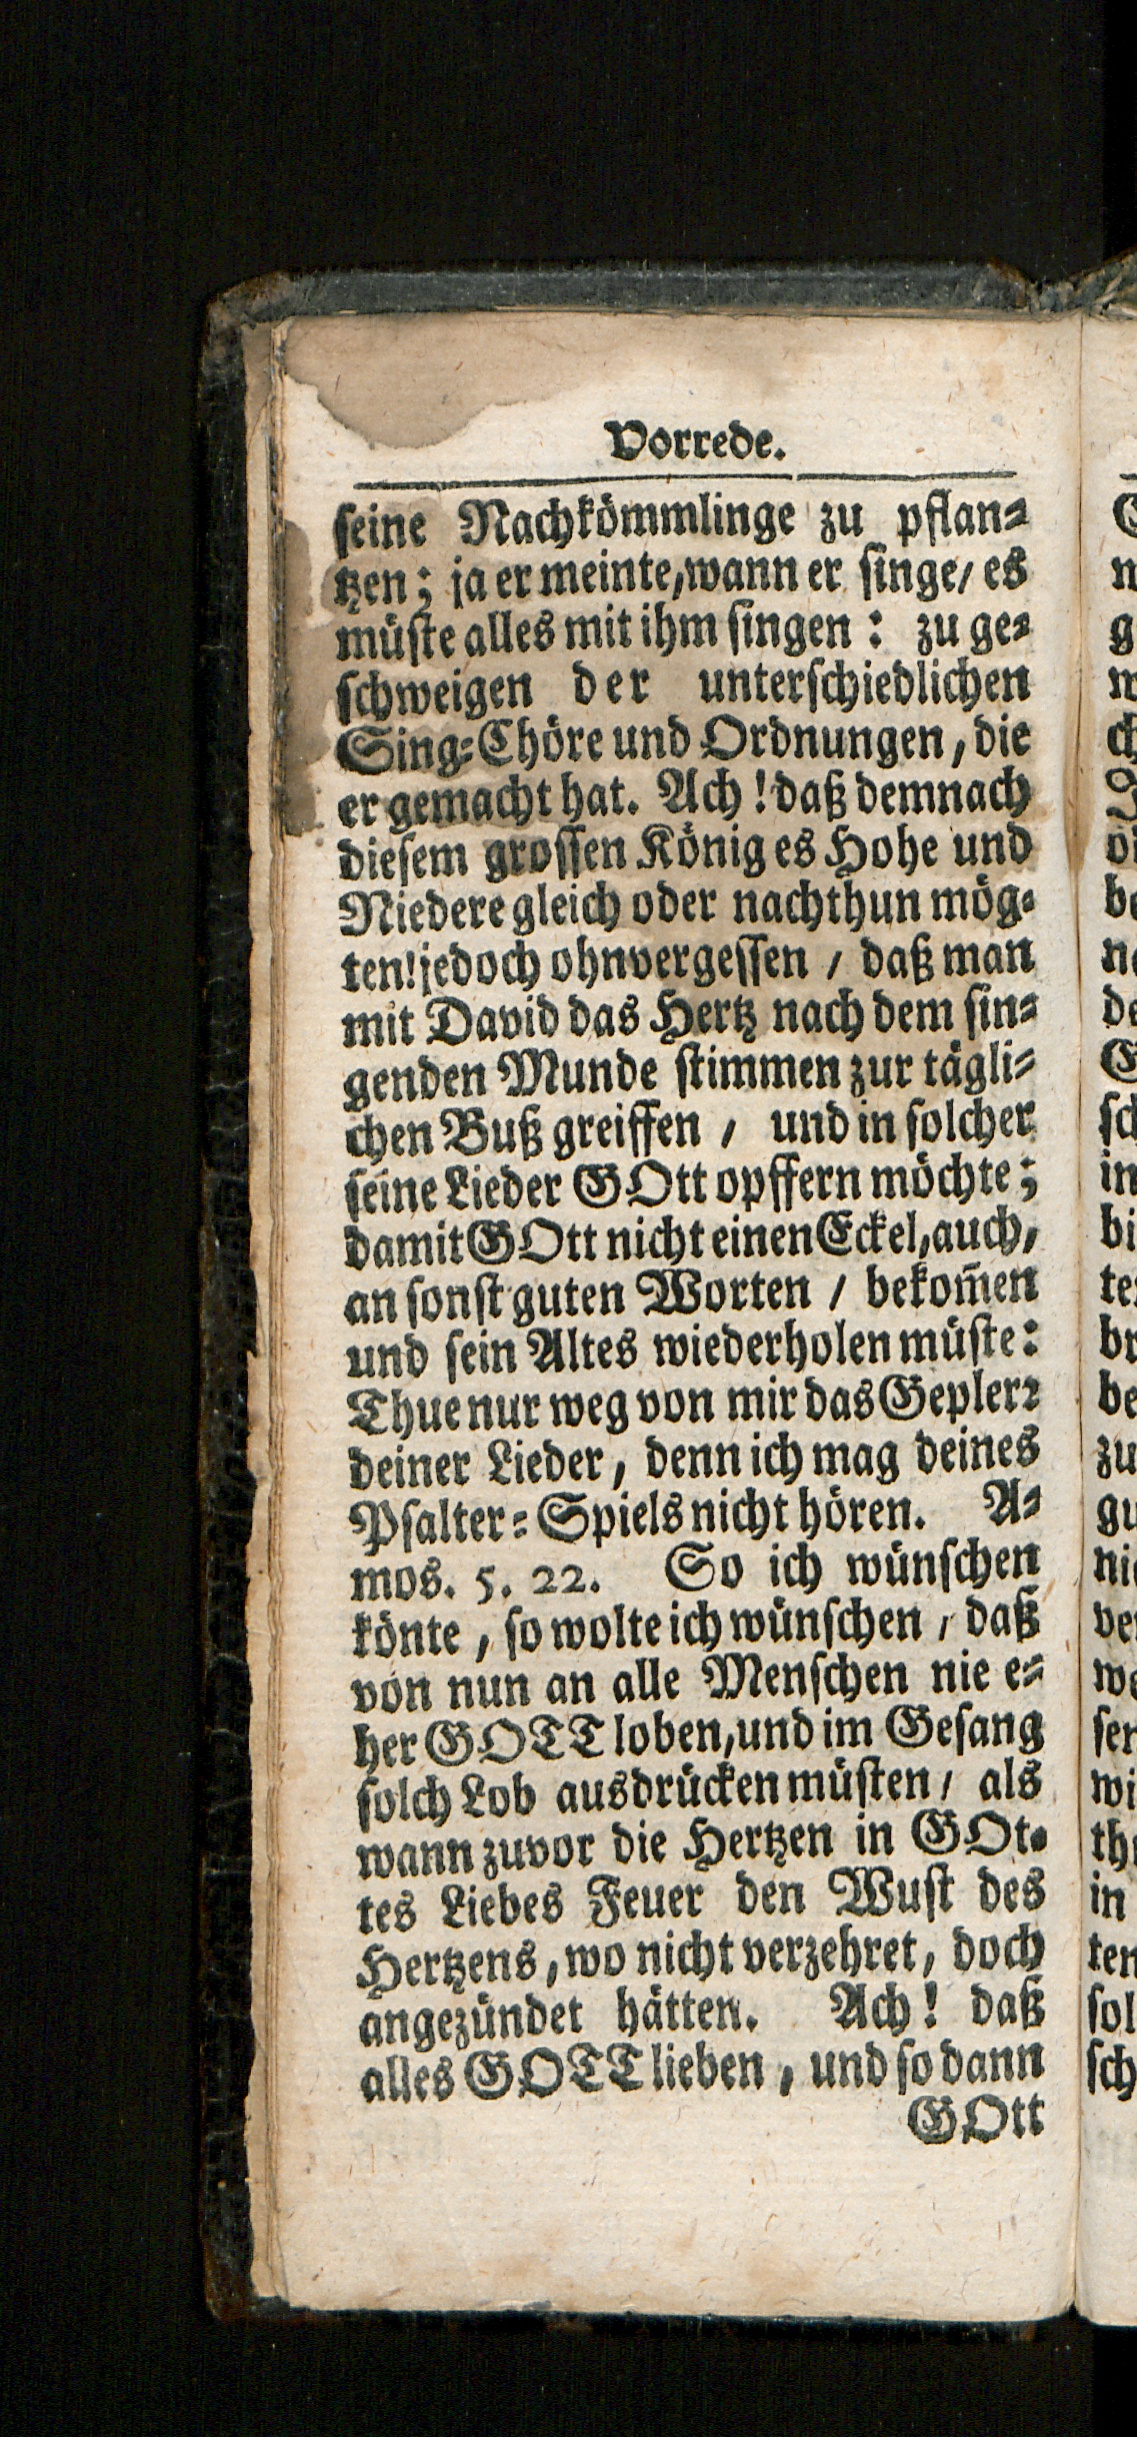 Vorrede.
seine Nachkömmlinge zu pflan-
tzen; ja er meinte, wann er singe/ es
müste alles mit ihm singen: zu ge-
schweigen der unterschiedlichen
Sing-Chöre und Ordnungen, die
er gemacht hat. Ach! daß demnach
diesem grossen König es Hohe und
Niedere gleich oder nachthun mög-
ten! jedoch ohnvergessen / daß man
mit David das Hertz nach dem sin-
genden Munde stimmen zur tägli-
chen Buß greiffen / und in solcher
seine Lieder GOtt opffern möchte;
damit GOtt nicht einen Eckel, auch,
an sonst guten Worten / bekom̃en
und sein Altes wiederholen müste:
Thue nur weg von mir das Geplerr
deiner Lieder, denn ich mag deines
Psalter-Spiels nicht hören. A-
mos. 5. 22. So ich wünschen
könte, so wolte ich wünschen / daß
von nun an alle Menschen nie e-
her GOTT loben, und im Gesang
solch Lob ausdrücken müsten / als
wann zuvor die Hertzen in GOt-
tes Liebes Feuer den Wust des
Hertzens, wo nicht verzehret, doch
angezündet hätten. Ach! daß
alles GOTT lieben, und so dann
GOtt